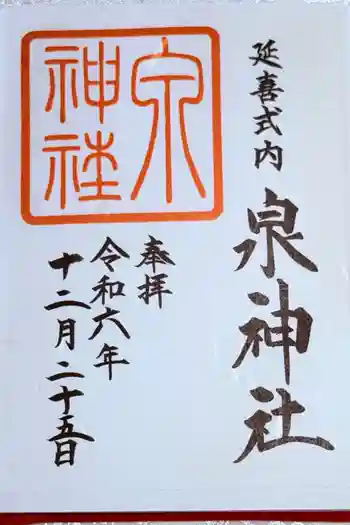 延喜式内
泉神社
奉拝
令和六年
十二月二十五日
泉
神社